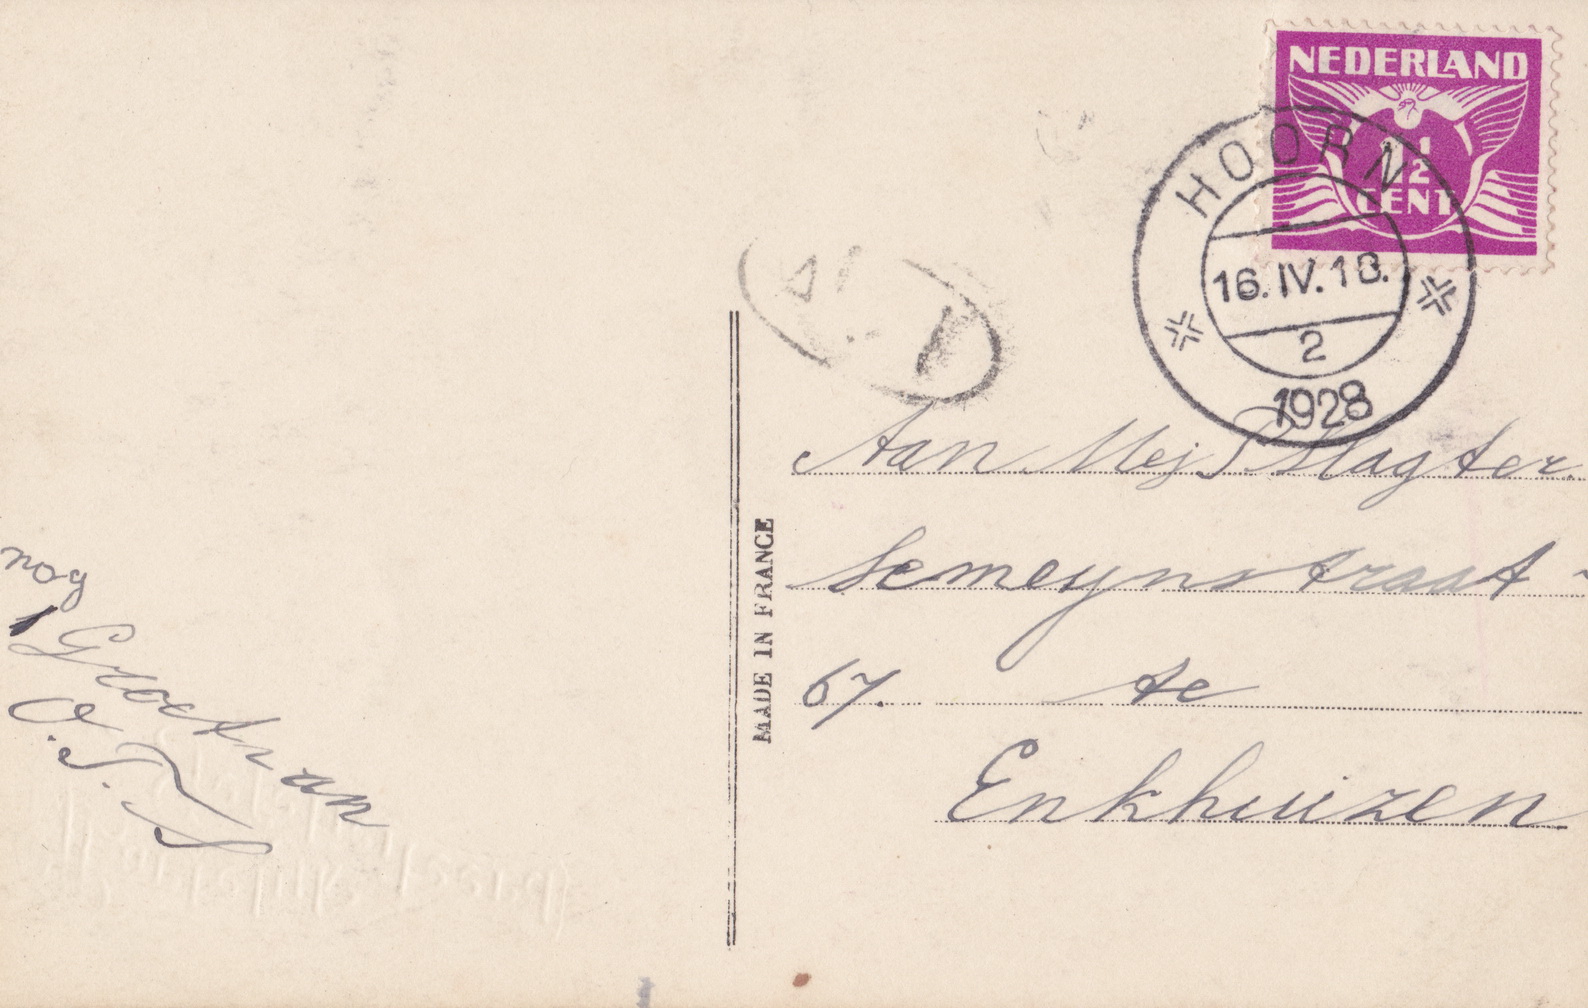 NEDERLAND
1 1/2
CENT
HOORN
16.IV.18.
2
1928
MADE IN FRANCE
Aan Mej P Slagter.
Semeynstraat -
67. te
Enkhuizen
nog
1 Groet van
O. T. S.